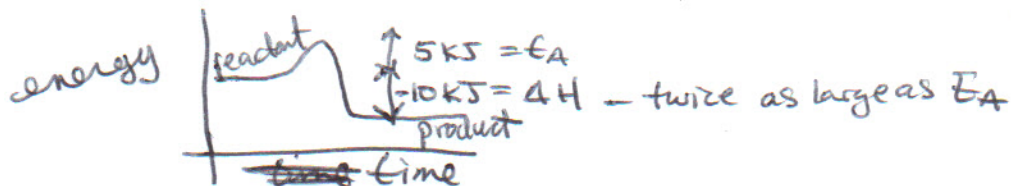 energy
reactant
5 KJ = EA
-10 KJ = ΔH - twice as large as EA
product
time